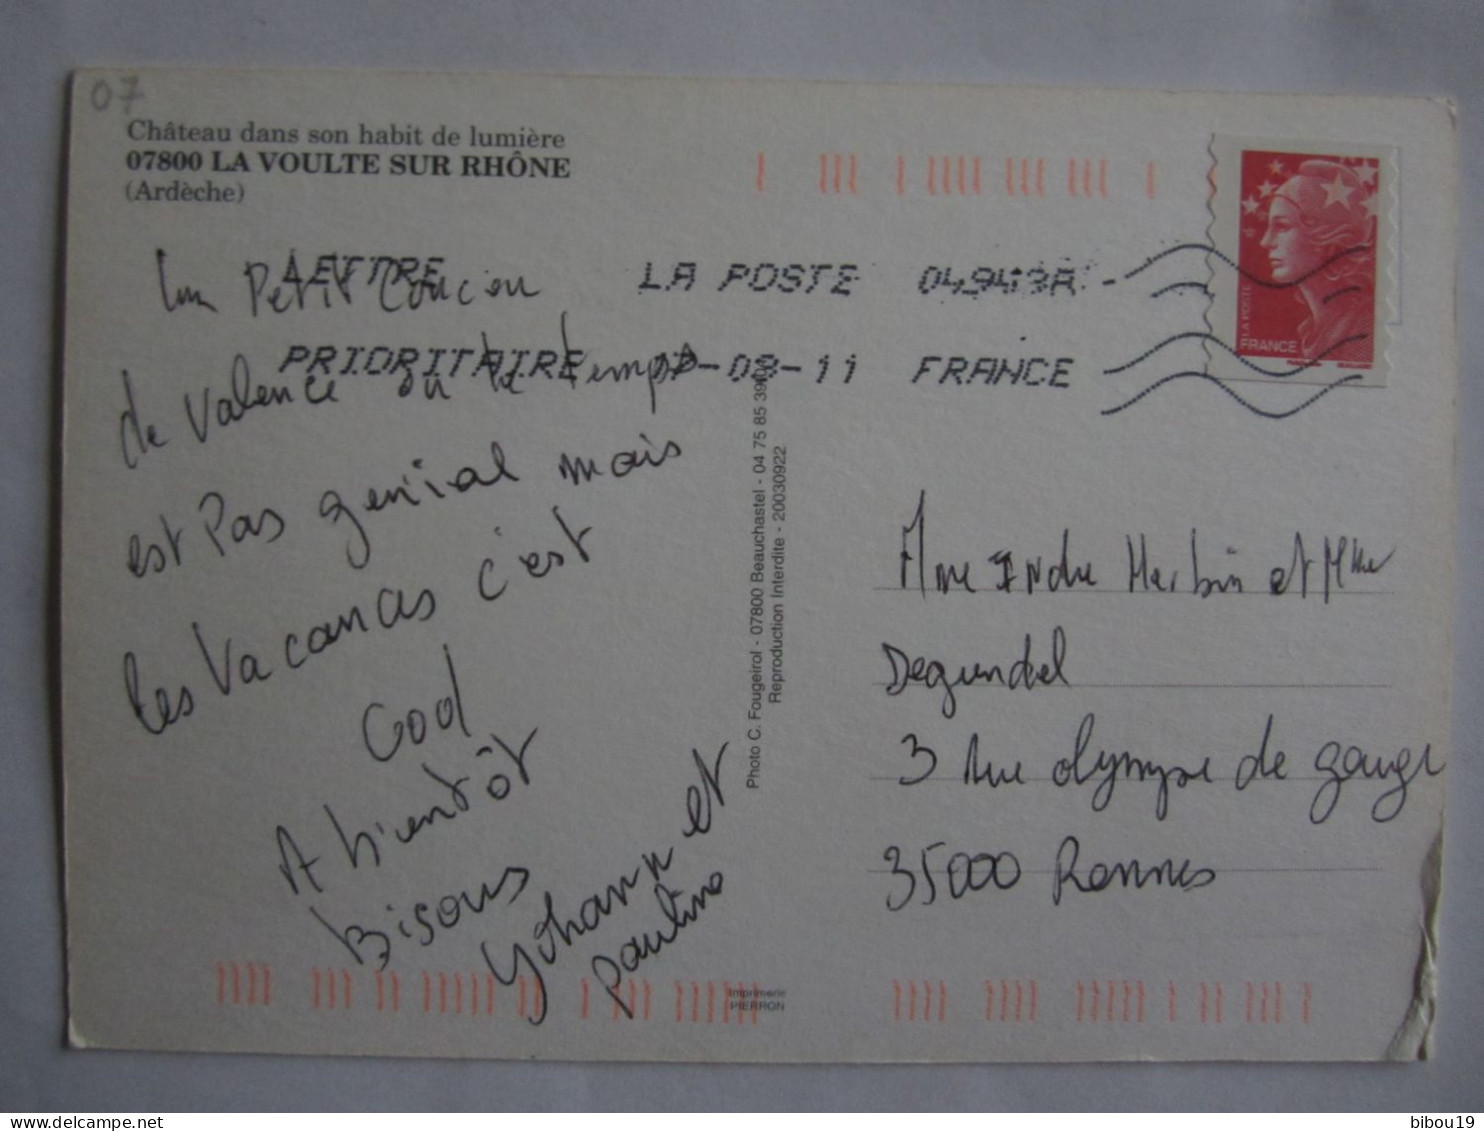 07
Château dans son habit de lumière
07800 LA VOULTE SUR RHÔNE
(Ardèche)
LETTRE
PRIORITAIRE
LA POSTE 04943A
-08-11 FRANCE
LA POSTE
FRANCE
Un Petit Coucou
de Valence où le temps
est Pas génial mais
les Vacances c'est
Cool
A bientôt
Bisous
Yohann et
Pauline
Photo C. Fougeirol - 07800 Beauchastel - 04 75 85
Reproduction Interdite - 20030922
Imprimerie
PIERRON
Mme et Mlle
3 rue olympe de gouge
35000 Rennes
bibou19